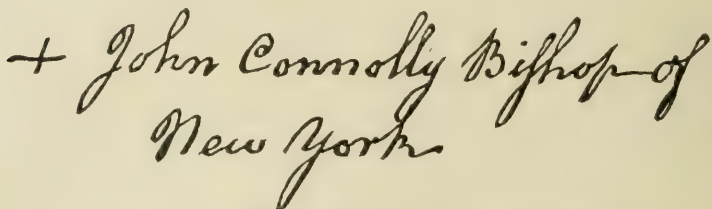 + John Connolly Biſhop of
New York